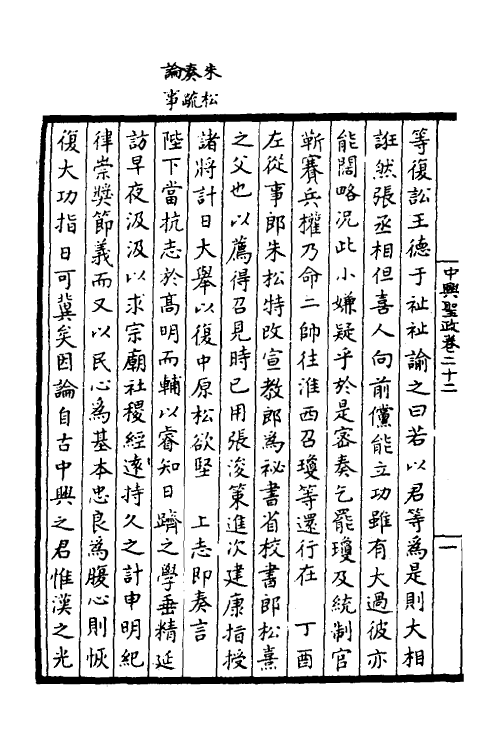 中興聖政卷二十二
一
朱松奏疏論事
等復訟王德于祉祉諭之曰若以君等為是則大相
誑然張丞相但喜人向前儻能立功雖有大過彼亦
能闊略況此小嫌疑乎於是密奏乞罷瓊及統制官
靳賽兵權乃命二帥往淮西召瓊等還行在　丁酉
左從事郎朱松特改宣教郎為祕書省校書郎松熹
之父也以薦得召見時已用張浚策進次建康指授
諸將計日大舉以復中原松欲堅　上志即奏言
陛下當抗志於高明而輔以睿知日躋之學垂精延
訪早夜汲汲以求宗廟社稷經遠持久之計申明紀
律崇奬節義而又以民心為基本忠良為腹心則恢
復大功指日可冀矣因論自古中興之君惟漢之光